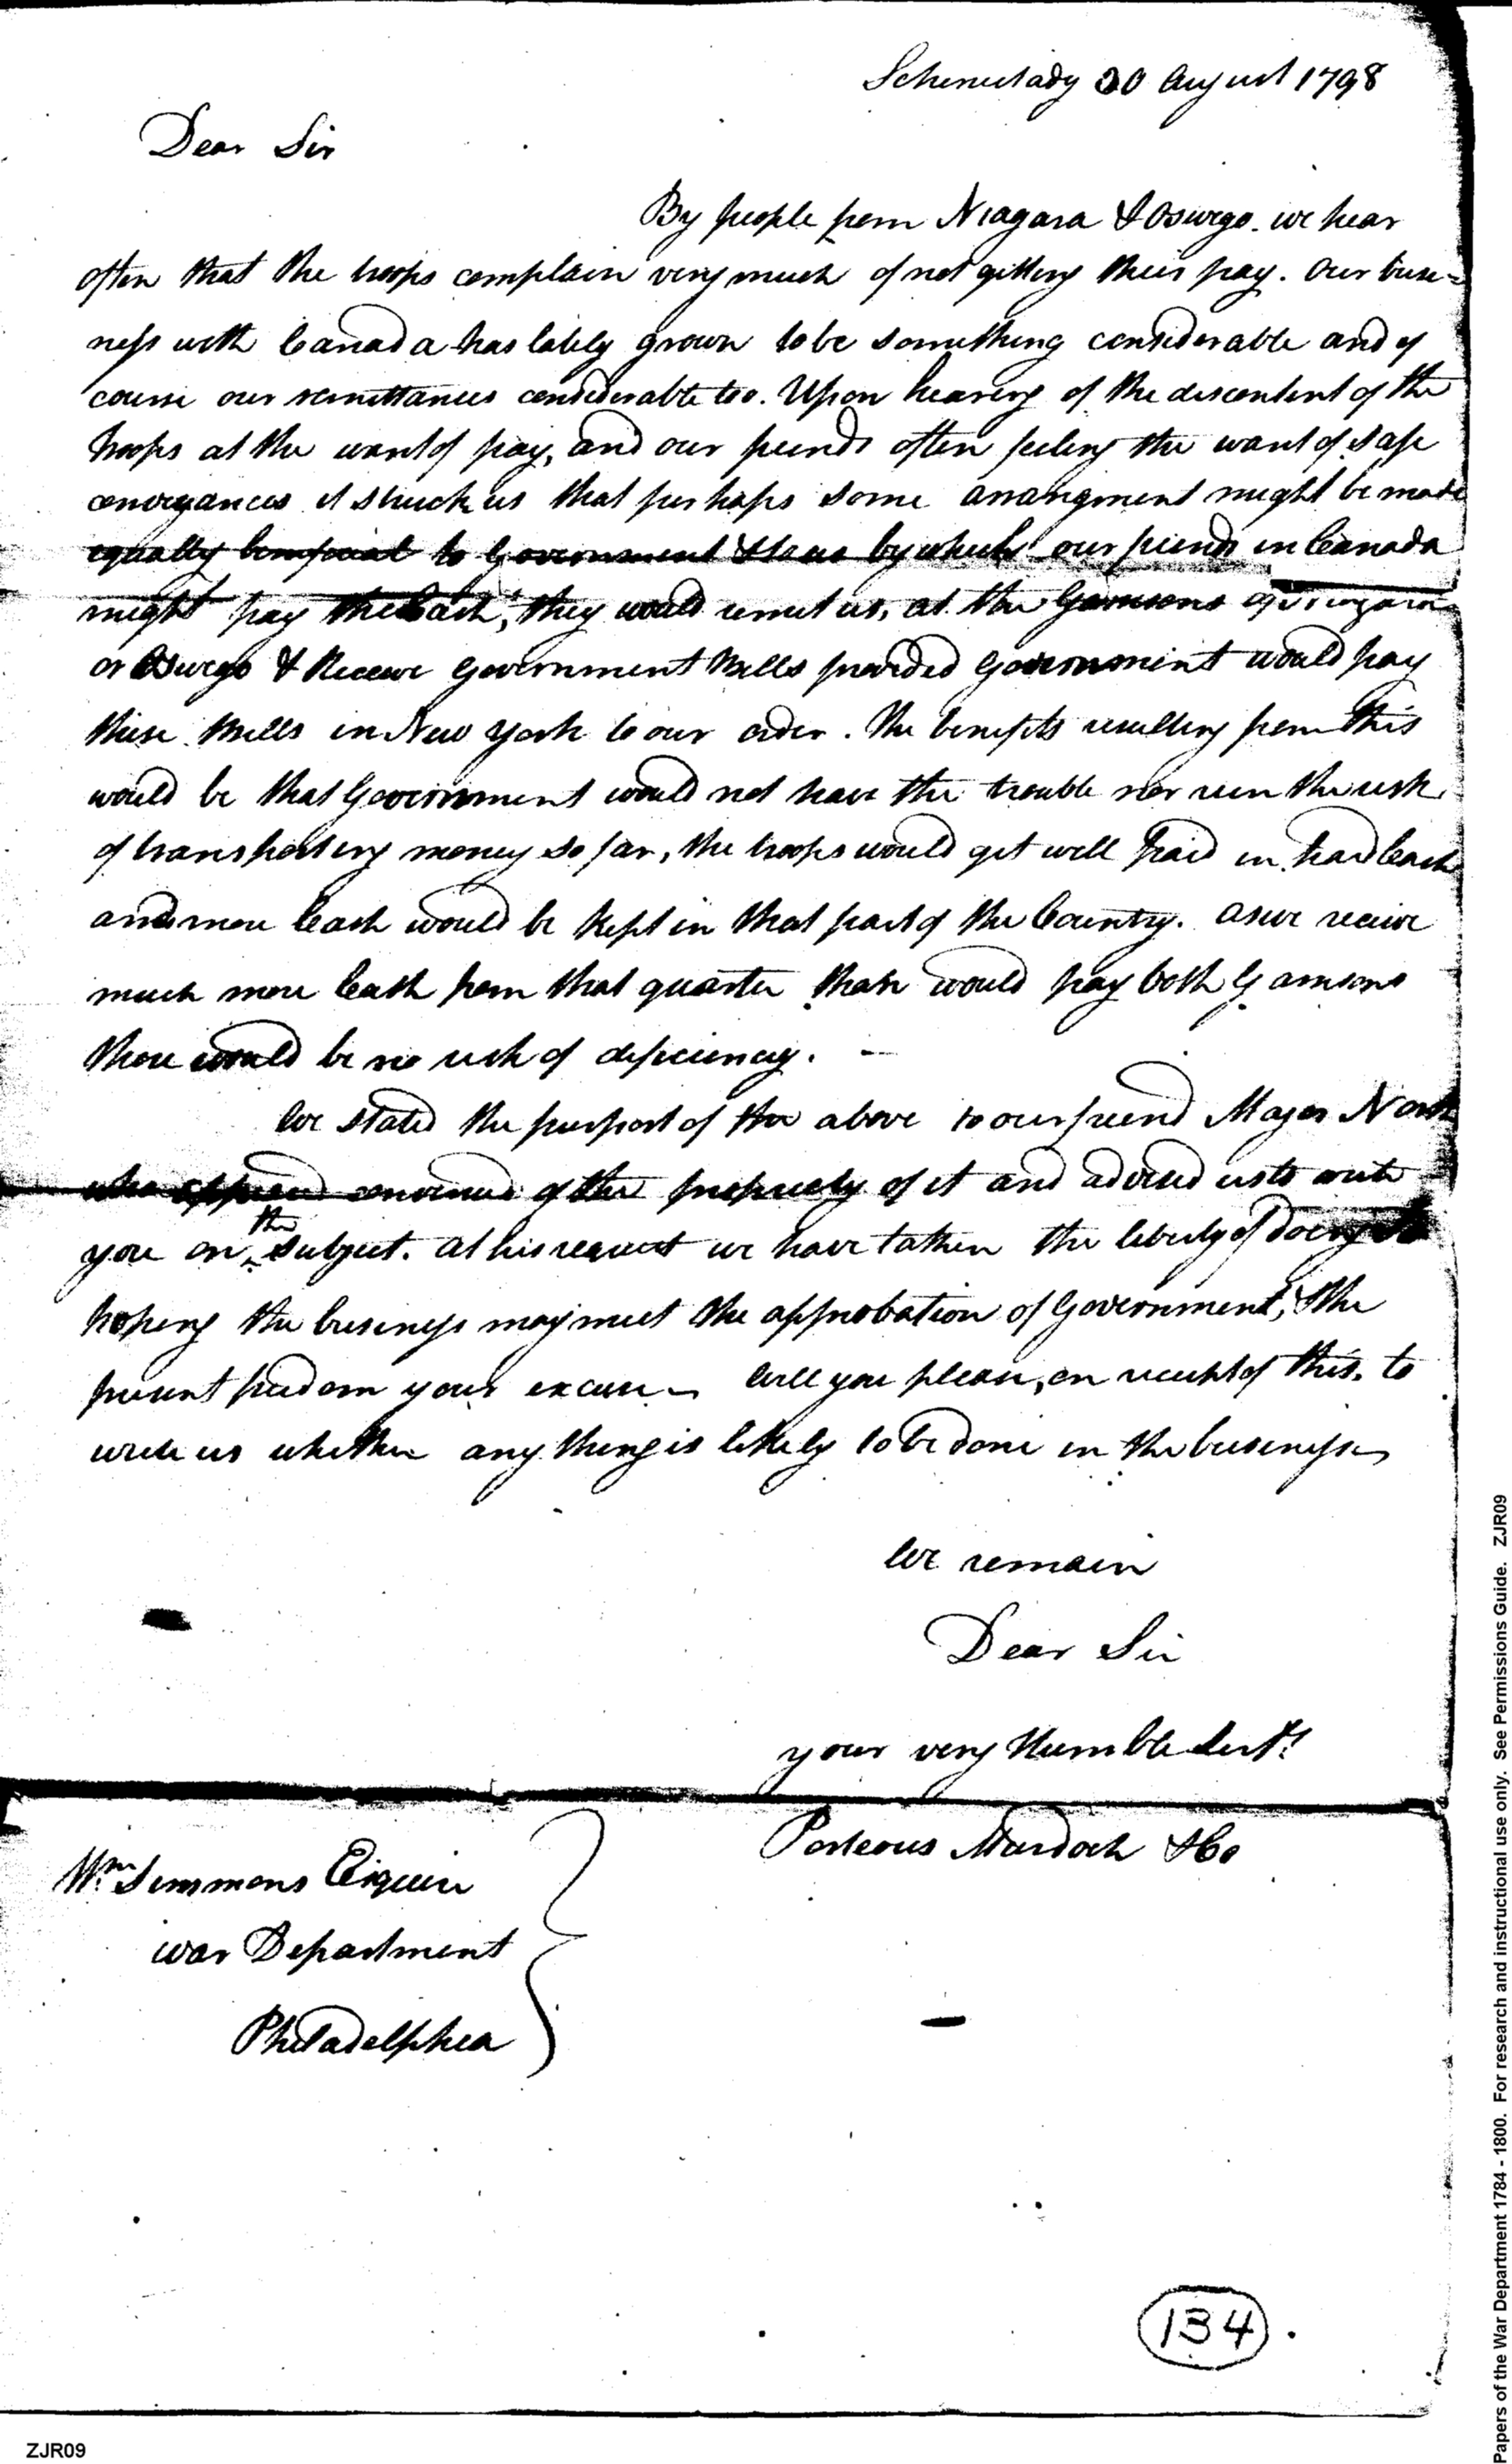 Schenectady 30 August 1798
Dear Sir
By people from Niagara & Oswego. we hear
often that the troops complain very much of not getting their pay. Our busi=
ness with Canada has lately grown to be something considerable and of
course our remittances considerable too. Upon hearing of the discontent of the
troops at the want of pay, and our friends often feeling the want of safe
conveyances it struck us that perhaps some arrangment might be made
equally beneficial to Government & to us by which our friends in Canada
might pay the Cash, they would remit us, at the Garrisons of Niagara
or Oswego & Receive Government Bills provided Government would pay
these Bills in New York to our order. The benefits resulting from this
would be that Government would not have the trouble nor run the risk
of transporting money so far, the troops would get well paid in hard Cash
and more Cash would be kept in that part of the Country. as we receive
much more Cash from that quarter than would pay both Garrisons
there would be no risk of deficiency. —
We stated the purport of the above to our friend Major North
who appeared convinced of the propriety of it and advised us to write
you on the subject. at his request we have taken the liberty of doing
hoping the business may meet the approbation of Government, & the
present freedom your excuse — Will you please, on receipt of this, to
write us whether any thing is likely to be done in the business
We remain
Dear Sir
your very Humble Servts
Porteous Murdoch & Co
Wm Simmons Esquire
War Department
Philadelphia
134
ZJR09
Papers of the War Department 1784 - 1800. For research and instructional use only. See Permissions Guide. ZJR09